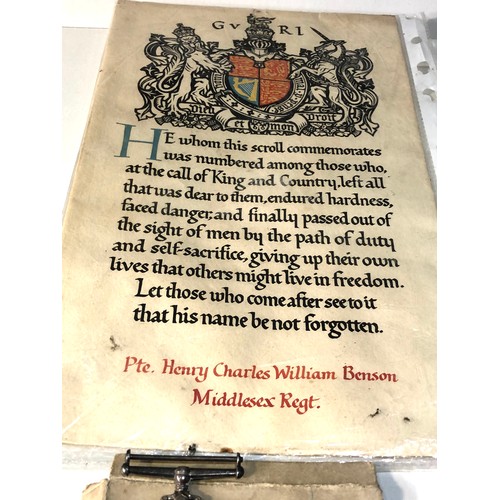 GVRI
Dieu et mon droit
HE whom this scroll commemorates
was numbered among those who,
at the call of King and Country, left all
that was dear to them, endured hardness,
faced danger, and finally passed out of
the sight of men by the path of duty
and self-sacrifice, giving up their own
lives that others might live in freedom.
Let those who come after see to it
that his name be not forgotten.
Pte. Henry Charles William Benson
Middlesex Regt.